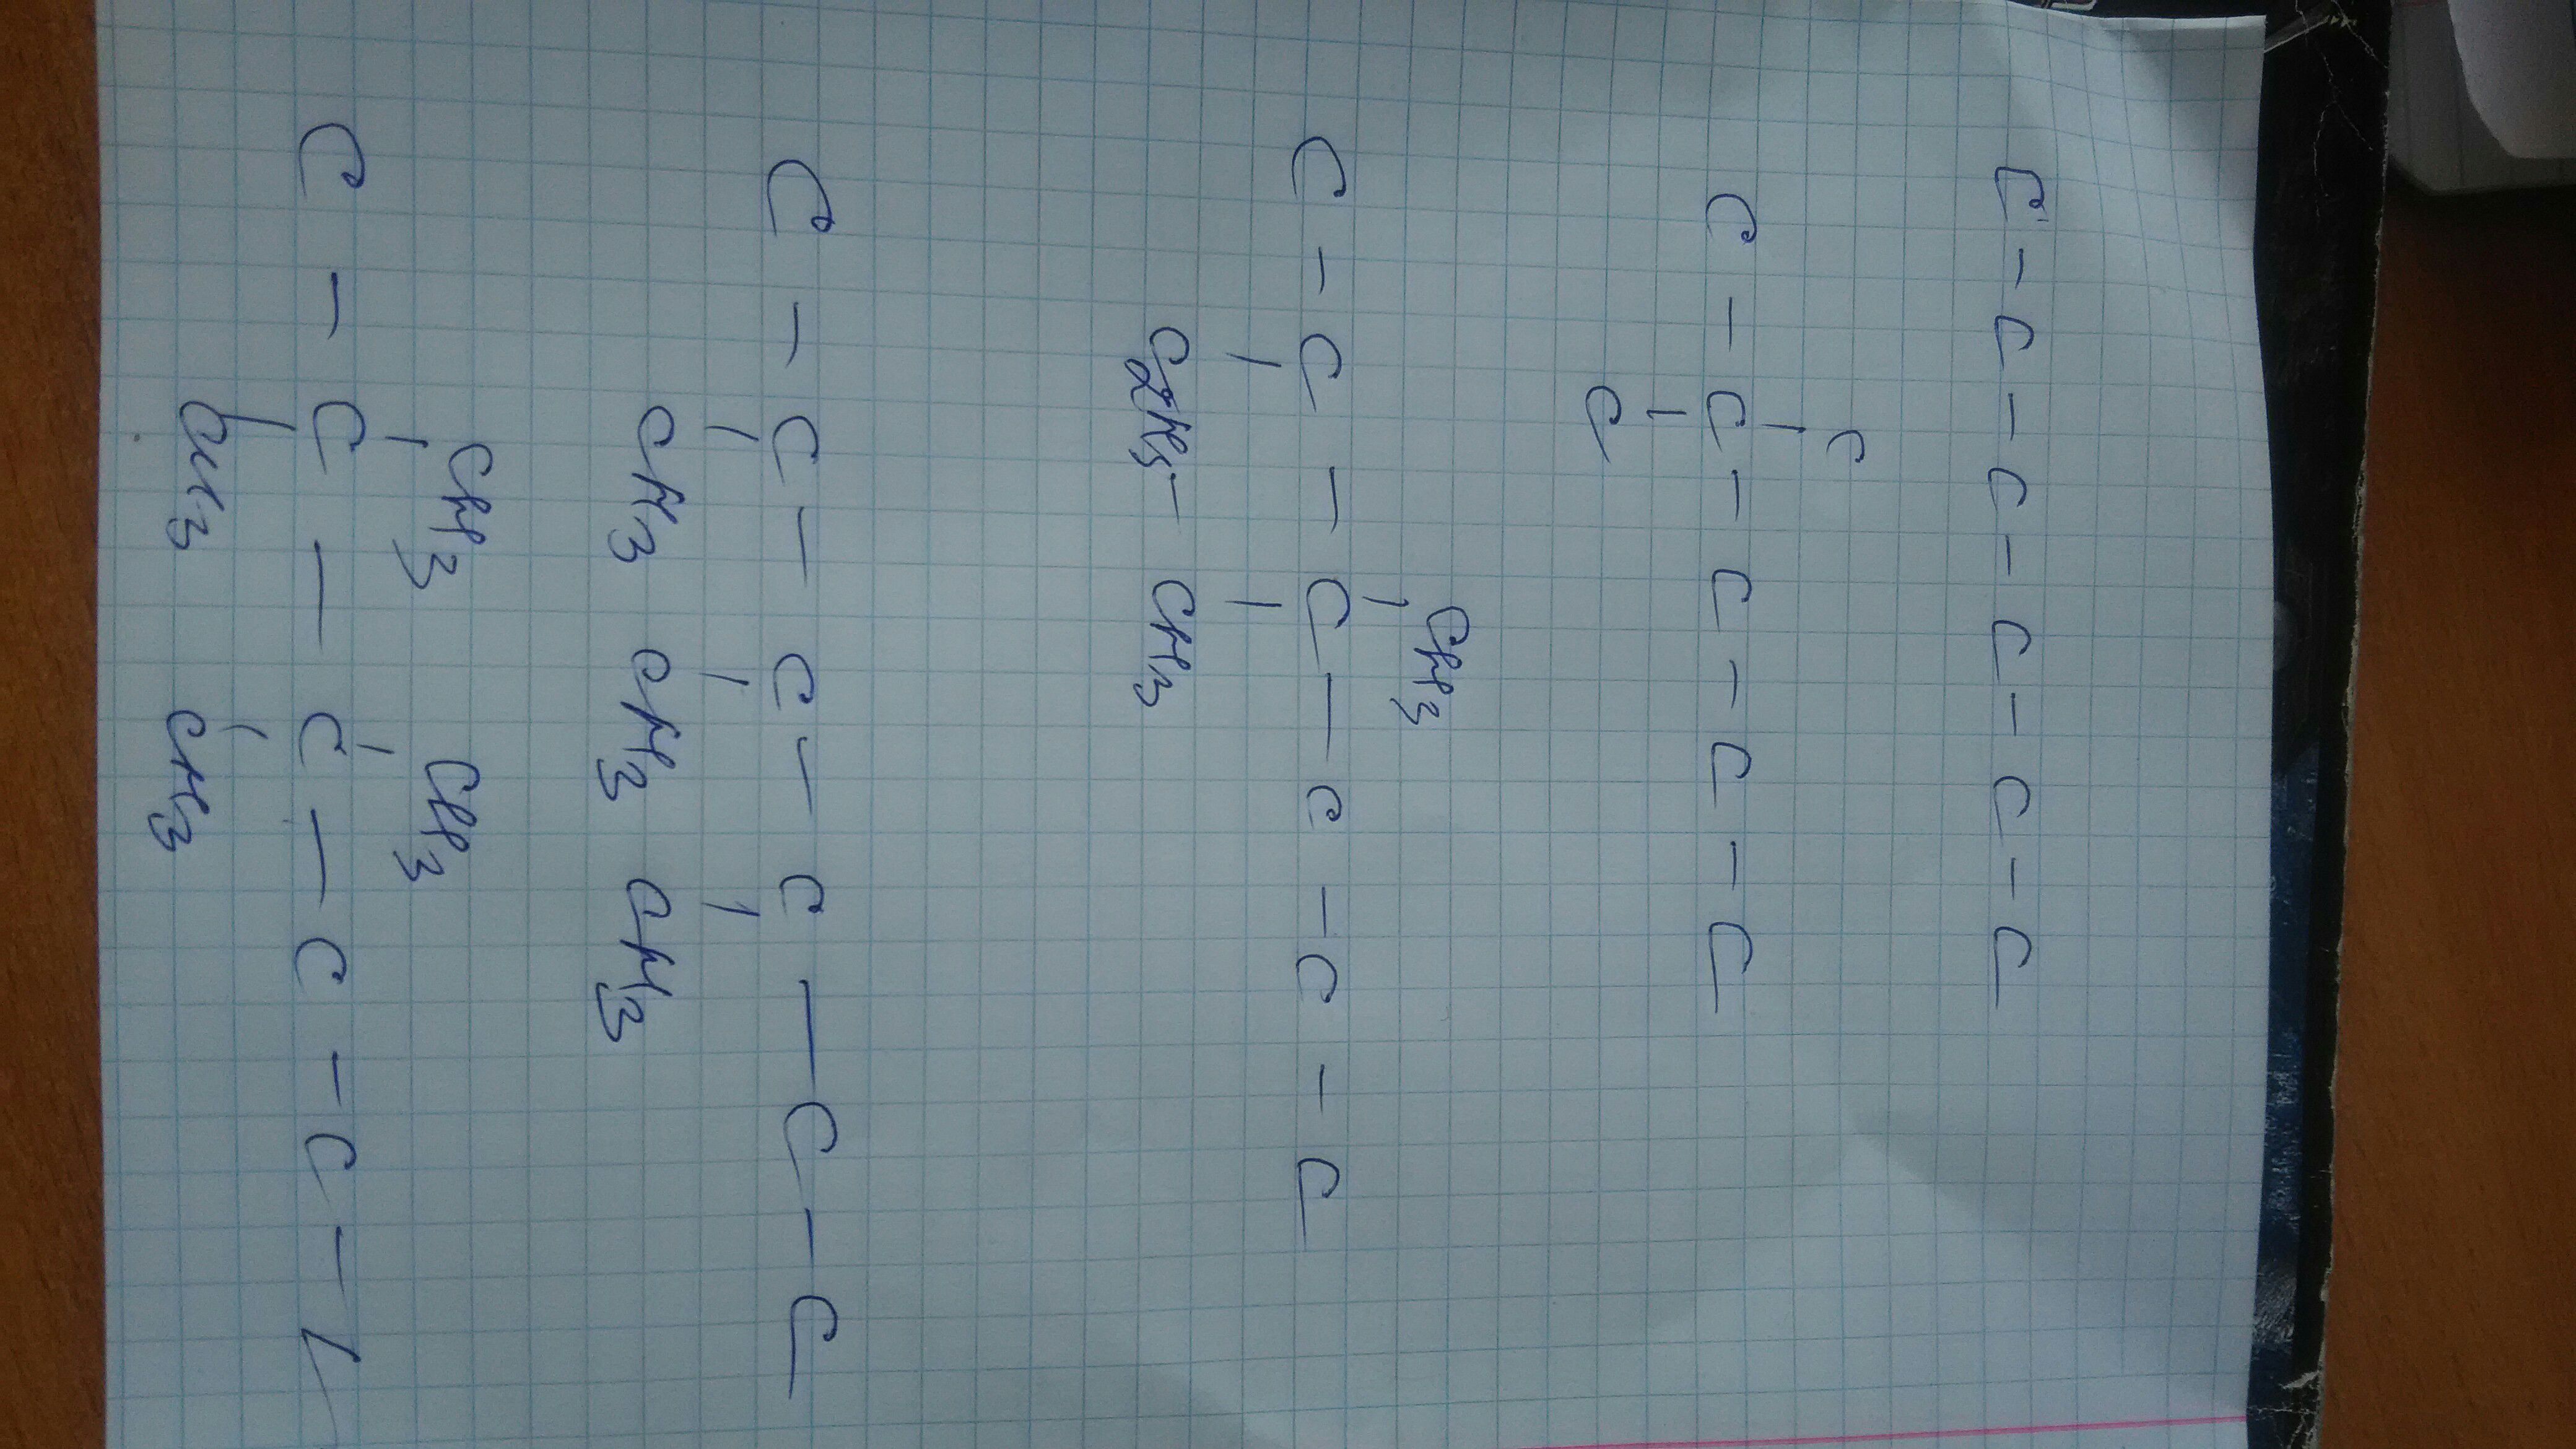 C-C-C-C-C-C
C
C-C-C-C-C
C
CH3
C-C-C-C-C-C
C2H5- CH3
C-C-C-C-C-C
CH3 CH3 CH3
CH3 CH3
C-C-C-C-C-
CH3 CH3